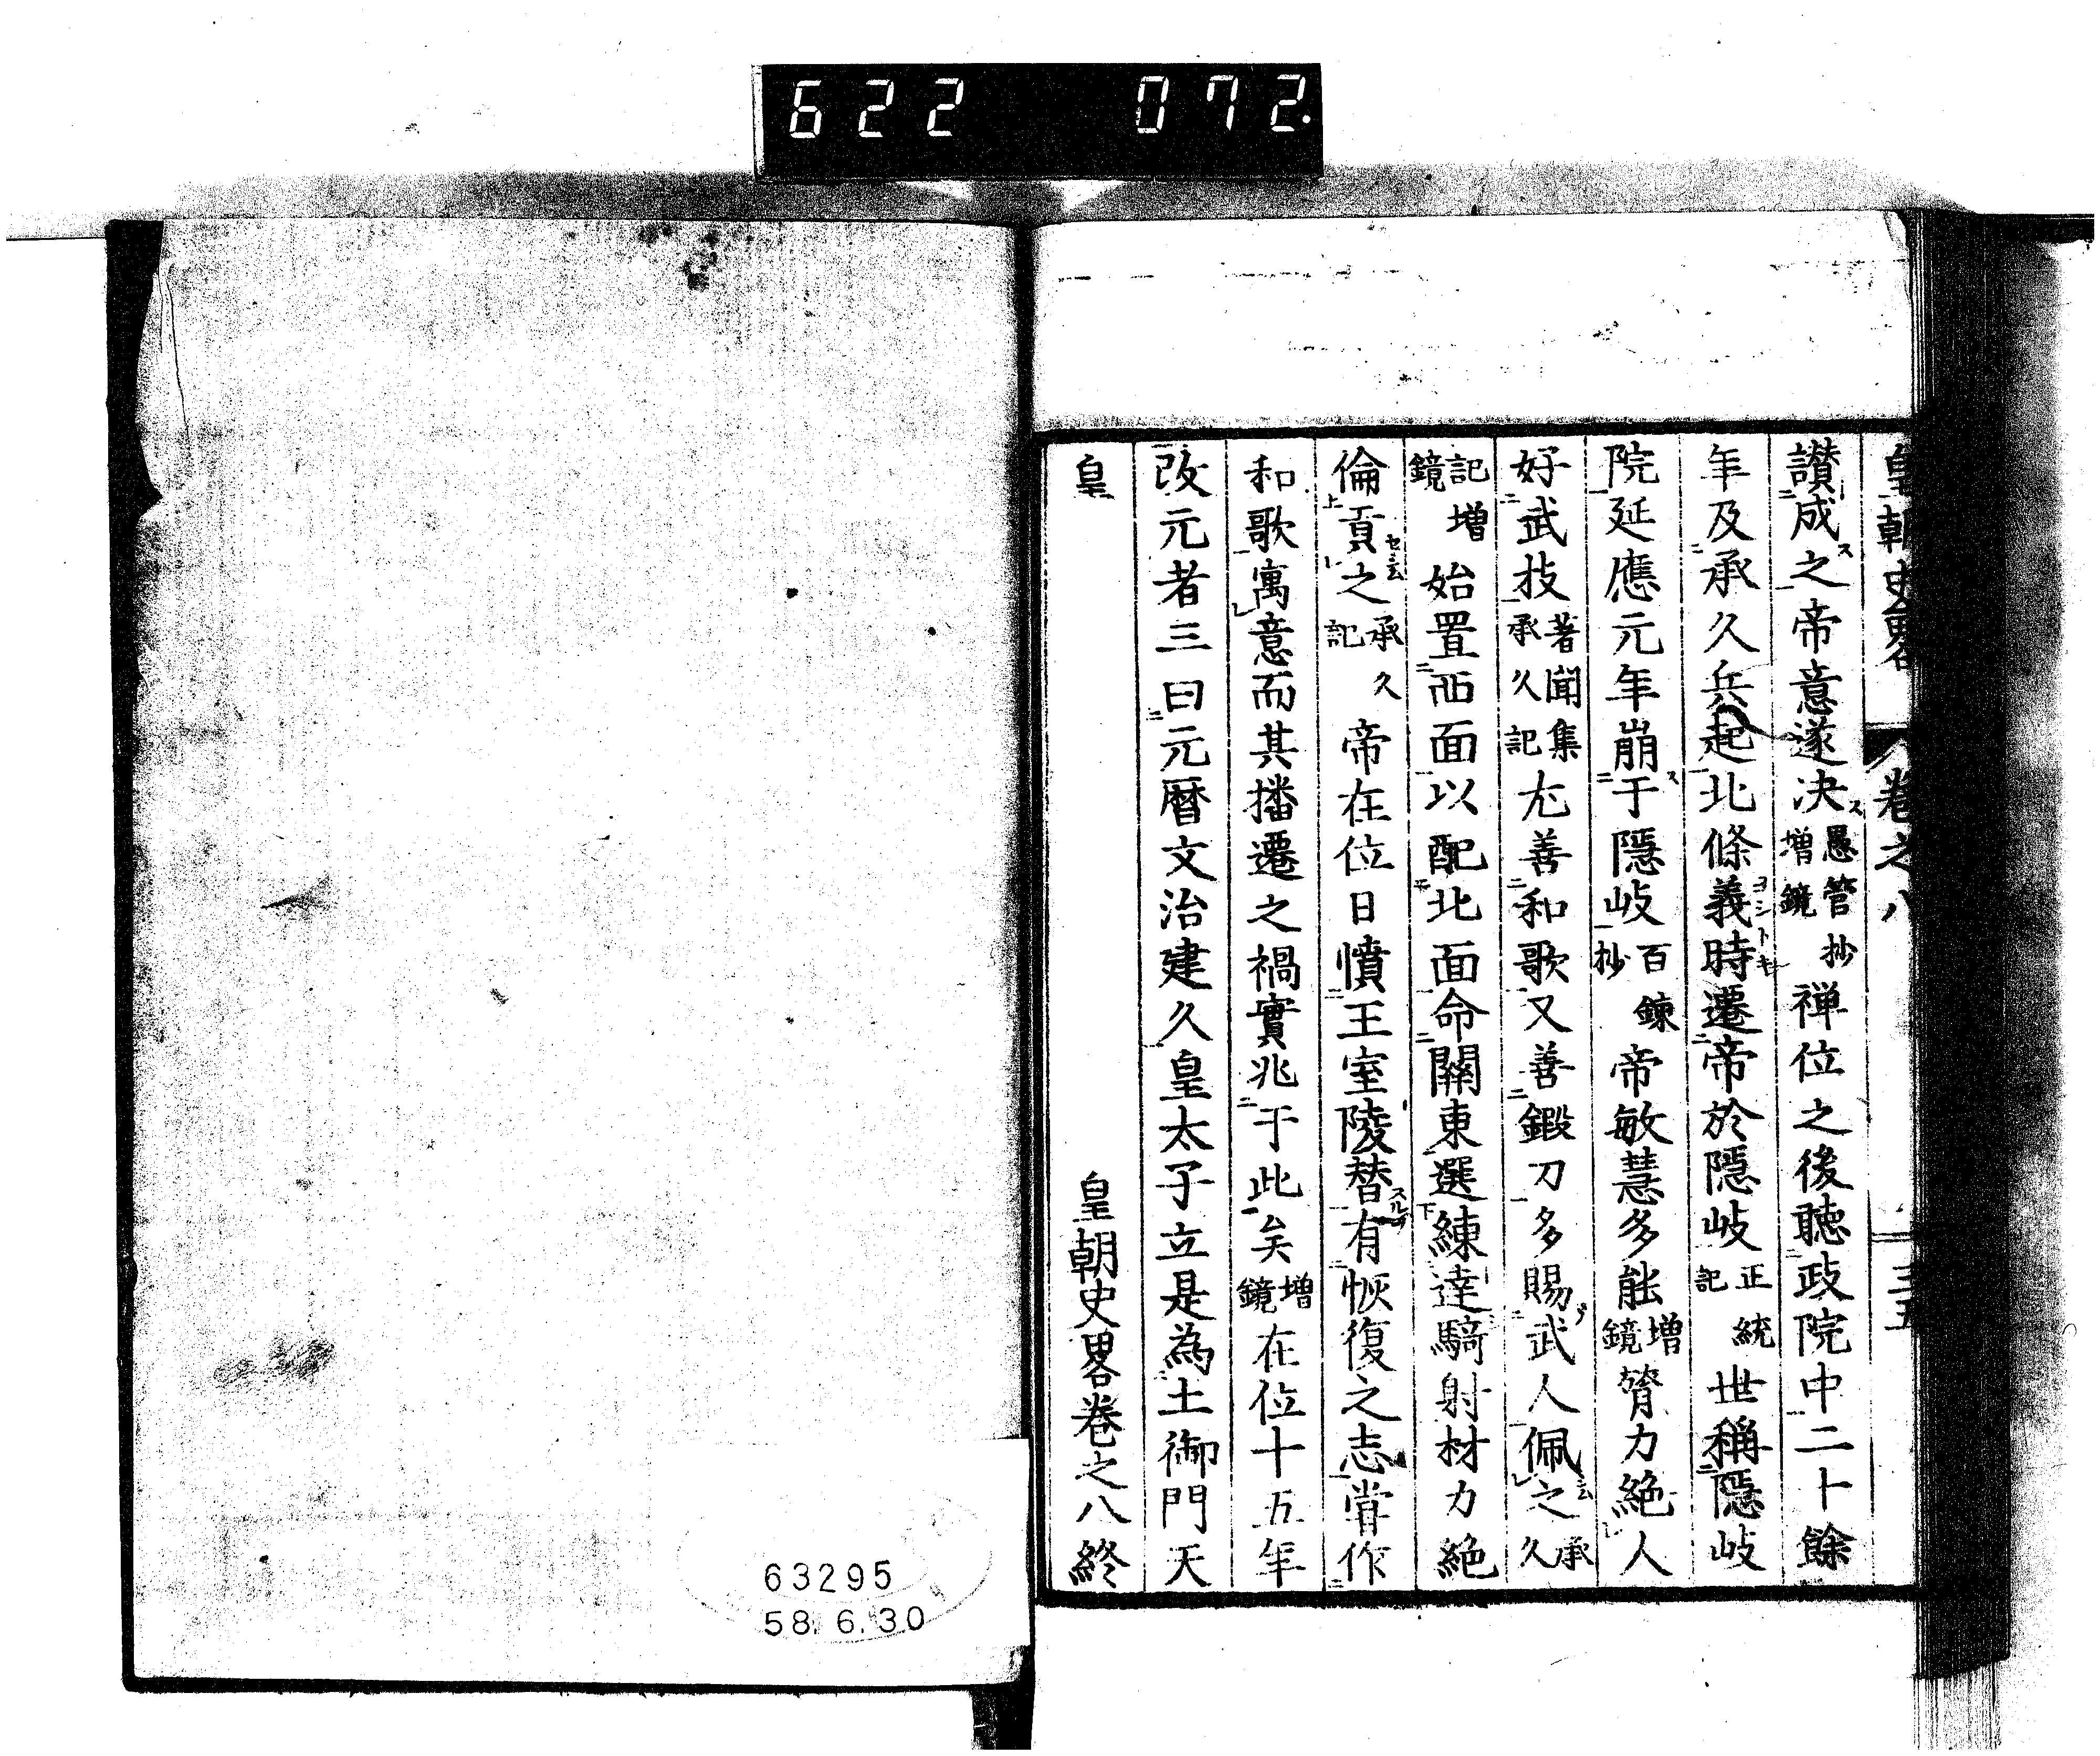 622 072.
皇朝史畧 卷之八 三五
讃成ス之帝意遂決ス愚管抄増鏡禅位之後聴政院中二十餘
年及承久兵起北條義時ヨシトキ遷帝於隱岐正統記世稱隱岐
院延應元年崩ス于隱岐百錬抄帝敏慧多能増鏡膂力絶人
好武技著聞集承久記尤善和歌又善鍛刀多賜武人佩之承久
記増鏡始置西面以配北面命關東選練達騎射材力絶
倫貢之承久記帝在位日憤王室陵替有恢復之志嘗作
和歌寓意而其播遷之禍實兆于此矣増鏡在位十五年
改元者三曰元暦文治建久皇太子立是為土御門天
皇
皇朝史畧卷之八終
63295
58.6.30